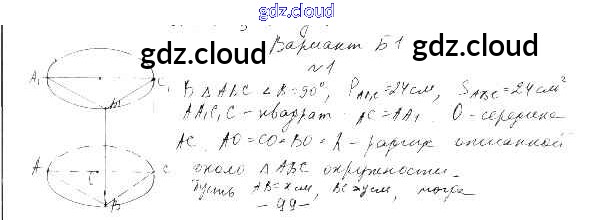 gdz.cloud
Вариант Б1
gdz.cloud gdz.cloud
№1
A₁ C₁ B₁
В △ABC ∠B=90°, P_ABC=24см, S_ABC=24см²
AA₁C₁C - квадрат. AC=AA₁. O - середина
AC. AO=CO=BO=R - радиус описанной
A C
около △ABC окружности.
B
Пусть AB=x см, BC=y см, тогда
- 99 -